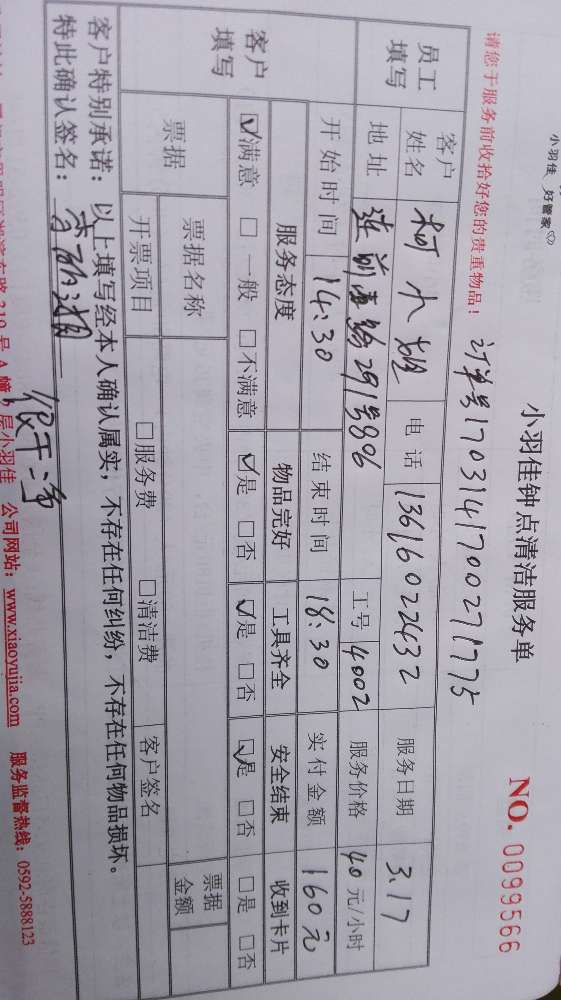 小羽佳 好管家
小羽佳钟点清洁服务单
NO. 0099566
请您于服务前收拾好您的贵重物品！ 订单号1703141700271775
员工填写 客户姓名 柯小姐 电话 13616022432 服务日期 3.17
地址 莲前西路291号806 工号 4002 服务价格 40元/小时
开始时间 14:30 结束时间 18:30 实付金额 160元
客户填写 服务态度 物品完好 工具齐全 安全结束 收到卡片
☑满意 □一般 □不满意 ☑是 □否 ☑是 □否 ☑是 □否 □是 □否
票据 票据名称 票据金额
开票项目 □服务费 □清洁费 客户签名
客户特别承诺：以上填写经本人确认属实，不存在任何纠纷，不存在任何物品损坏。
特此确认签名：
很干净
310号A幢 层小羽佳 公司网站：www.xiaoyujia.com 服务监督热线：0592-5888123